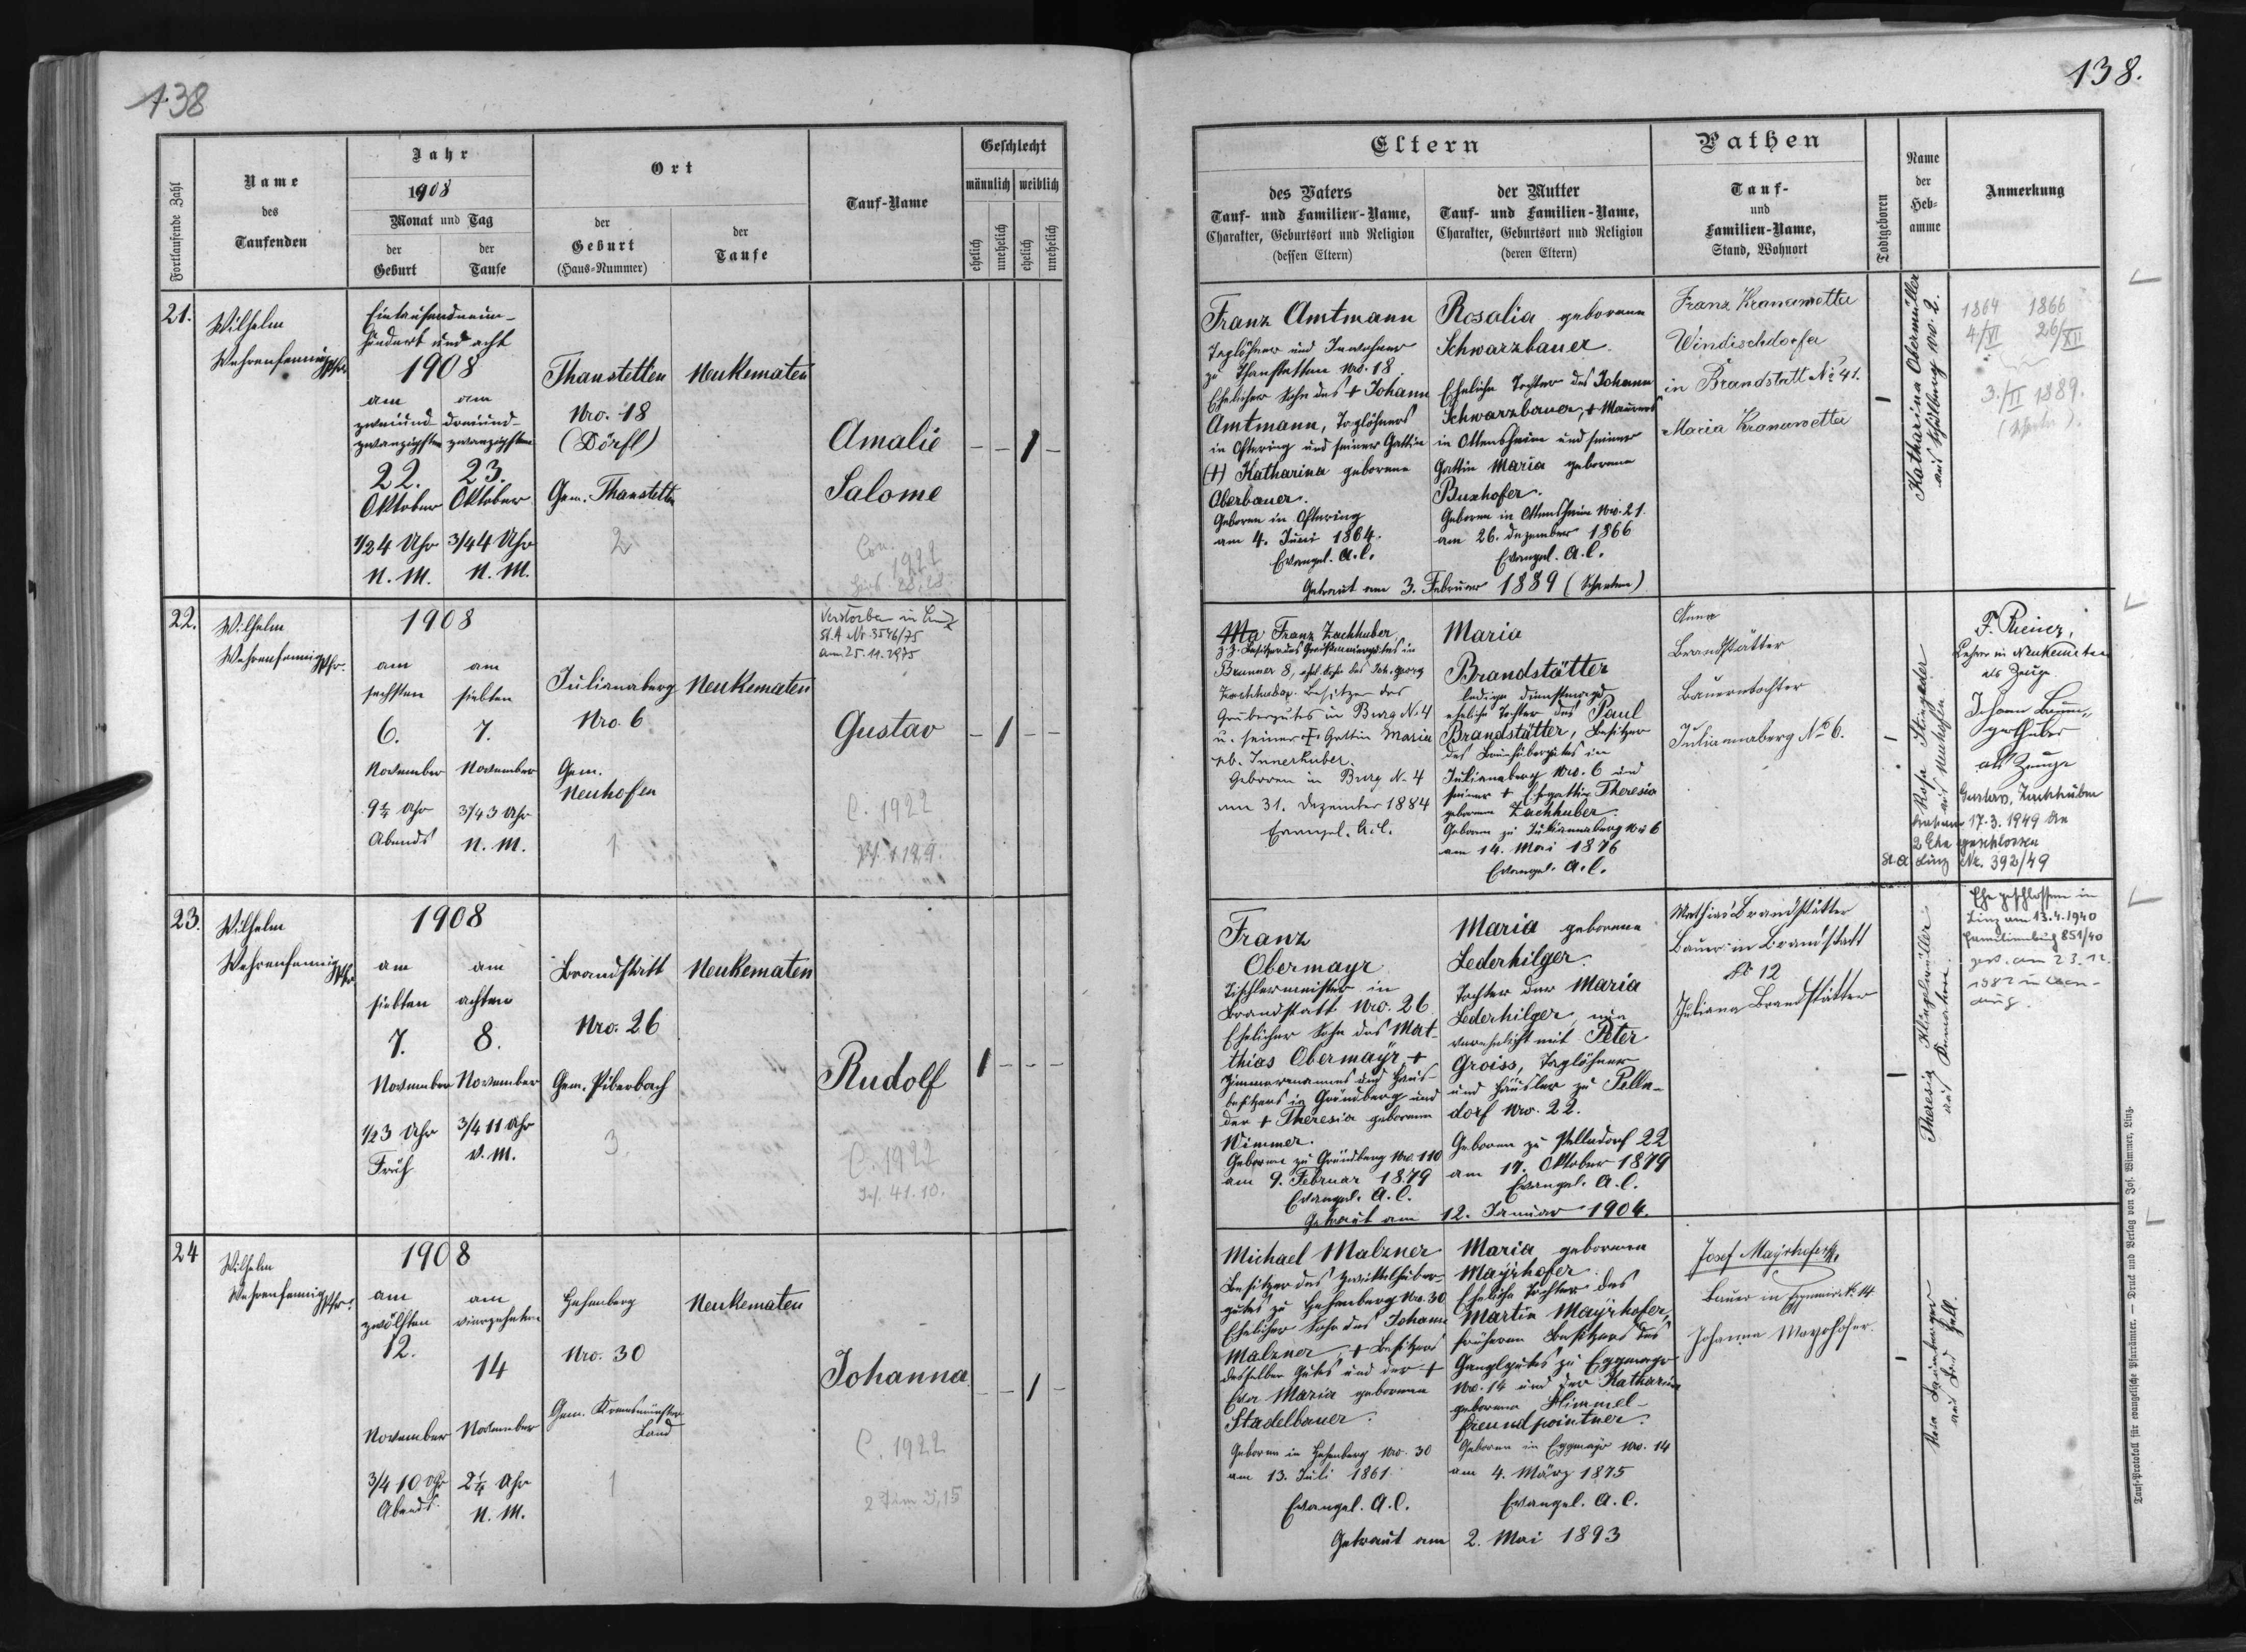 138
138.
Fortlaufende Zahl
Name
des
Taufenden
Jahr
1908
Monat und Tag
der
Geburt
der
Taufe
Ort
der
Geburt
(Haus-Nummer)
der
Taufe
Tauf-Name
Geschlecht
männlich
weiblich
ehelich
unehelich
ehelich
unehelich
Eltern
des Vaters
Tauf- und Familien-Name,
Charakter, Geburtsort und Religion
(dessen Eltern)
der Mutter
Tauf- und Familien-Name,
Charakter, Geburtsort und Religion
(deren Eltern)
Pathen
Tauf-
und
Familien-Name,
Stand, Wohnort
Todtgeboren
Name
der
Heb-
amme
Anmerkung
21.
Wilhelm
Wehrenfennig Pfr.
Eintausendneun-
hundert und acht
1908
am
zweiund-
zwanzigsten
22.
Oktober
1/24 Uhr
N. M.
am
dreiund-
zwanzigsten
23.
Oktober
3/44 Uhr
N. M.
Thanstetten
Nro. 18
(Dörfl)
Gem. Thanstetten
2
Neukematen
Amalie
Salome
1922
- - 1 -
Franz Amtmann
Taglöhner und Inwohner
zu Thanstetten Nro. 18.
Ehelicher Sohn des + Johann
Amtmann, Taglöhners
in Oftering und seiner Gattin
(+) Katharina geborene
Oberbauer.
Geboren in Oftering
am 4. Juni 1864.
Evangel. A. C.
Rosalia geborene
Schwarzbauer.
Eheliche Tochter des Johann
Schwarzbauer, + Maurers
in Ottensheim und seiner
Gattin Maria geborene
Buxhofer.
Geboren in Ottensheim Nro. 21.
am 26. Dezember 1866
Evangel. A. C.
Getraut am 3. Februar 1889 (Scharten)
Franz Kranawetter
Windischdorfer
in Brandstatt No 41.
Maria Kranawetter
-
Katharina Obermüller
1864 1866
4/VI 26/XII
3./II 1889.
(Scharten).
22.
Wilhelm
Wehrenfennig Pfr.
1908
am
sechsten
6.
November
9 1/4 Uhr
Abends
am
siebten
7.
November
3/43 Uhr
N. M.
Julianaberg
Nro. 6
Gem.
Neuhofen
1
Neukematen
Verstorben in Linz
St.A Nr. 3546/75
am 25.11.1975
Gustav
C. 1922
- 1 - -
Franz Zachhuber
Brunner 8, ehel. Sohn des Joh. Georg
Zachhuber, Besitzer des
Grubergutes in Burg No 4
u. seiner + Gattin Maria
gb. Innerhuber.
Geboren in Burg No 4
am 31. Dezember 1884
Evangel. A. C.
Maria
Brandstätter
ledige Dienstmagd
eheliche Tochter des Paul
Brandstätter, Besitzer
Julianaberg Nro. 6 und
seiner + Ehegattin Theresia
geborene Zachhuber.
Geboren zu Julianaberg Nro 6
am 14. Mai 1876
Evangel. A. C.
Anna
Brandstätter
Bauerntochter
Julianaberg No 6.
-
Rosa Stingeder
aus Neuhofen
Lehrer in Neukematen
als Zeuge
Johann Baum-
garthuber
als Zeuge
Gustav, Zachhuber
17.3.1949 die
2 Ehe geschlossen
St.A Linz Nr. 392/49
23.
Wilhelm
Wehrenfennig Pfr.
1908
am
siebten
7.
November
1/23 Uhr
Früh
am
achten
8.
November
3/4 11 Uhr
V. M.
Brandstatt
Nro. 26
Gem. Piberbach
3.
Neukematen
Rudolf
C. 1922
41.10.
1 - - -
Franz
Obermayr
Tischlermeister in
Brandstatt Nro. 26
Ehelicher Sohn des Mat-
thias Obermayr, +
Zimmermannes und Haus-
besitzers in Gründberg und
der + Theresia geborene
Wimmer.
Geboren zu Gründberg Nro. 110
am 9. Februar 1879
Evangel. A. C.
Maria geborene
Lederhilger.
Tochter der Maria
Lederhilger, nun
verehelicht mit Peter
Groiss, Taglöhner
und Häusler zu Pelln-
dorf Nro. 22.
Geboren zu Pellndorf 22
am 17. Oktober 1879
Evangel. A. C.
Getraut am 12. Januar 1904.
Mathias Brandstätter
Bauer in Brandstatt
No 12
Juliana Brandstätter
-
Theresia Klinglmüller
Ehe geschlossen in
Linz am 13.4.1940
Familienbuch 851/40
gest. am 23.12.
24
Wilhelm
Wehrenfennig Pfr.
1908
am
zwölften
12.
November
3/4 10 Uhr
Abends
am
vierzehnten
14
November
2 1/4 Uhr
N. M.
Hehenberg
Nro. 30
Gem. Kremsmünster
Land
1
Neukematen
Johanna
C. 1922
- - 1 -
Michael Malzner
Besitzer des Zwittelhuber-
gutes zu Hehenberg Nro. 30
Ehelicher Sohn des Johann
Malzner, + Besitzers
desselben Gutes und der +
Eva Maria geborene
Stadelbauer.
Geboren in Hehenberg Nro. 30
am 13. Juli 1861.
Evangel. A. C.
Maria geborene
Mayrhofer.
Eheliche Tochter des
Martin Mayrhofer,
früheren Besitzers des
Ganglgutes zu Eggmayr
Nro. 14 und der Katharina
geborene Himmel-
freundpointner.
Geboren in Eggmayr Nro. 14
am 4. März 1875
Evangel. A. C.
Getraut am 2. Mai 1893
Josef Mayrhofer
Bauer in Eggmair No 14
Johanna Mayrhofer.
-
aus Bad Hall.
Tauf-Protokoll für evangelische Pfarrämter. — Druck und Verlag von Jos. Wimmer, Linz.